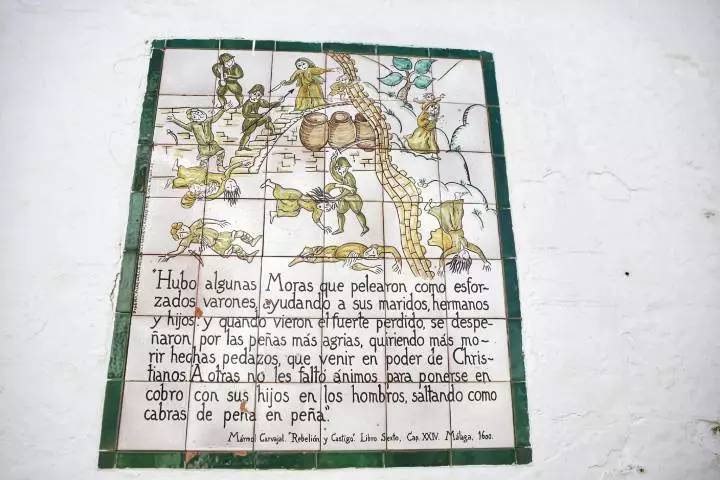 "Hubo algunas Moras que pelearon como esfor-
zados varones, ayudando a sus maridos, hermanos
y hijos: y quando vieron el fuerte perdido, se despe-
ñaron por las peñas más agrias, quiriendo más mo-
rir hechas pedazos, que venir en poder de Chris-
tianos. A otras no les faltó ánimos para ponerse en
cobro con sus hijos en los hombros, saltando como
cabras de peña en peña".
Mármol Carvajal. "Rebelión y Castigo". Libro Sexto, Cap. XXIV. Málaga, 1600.